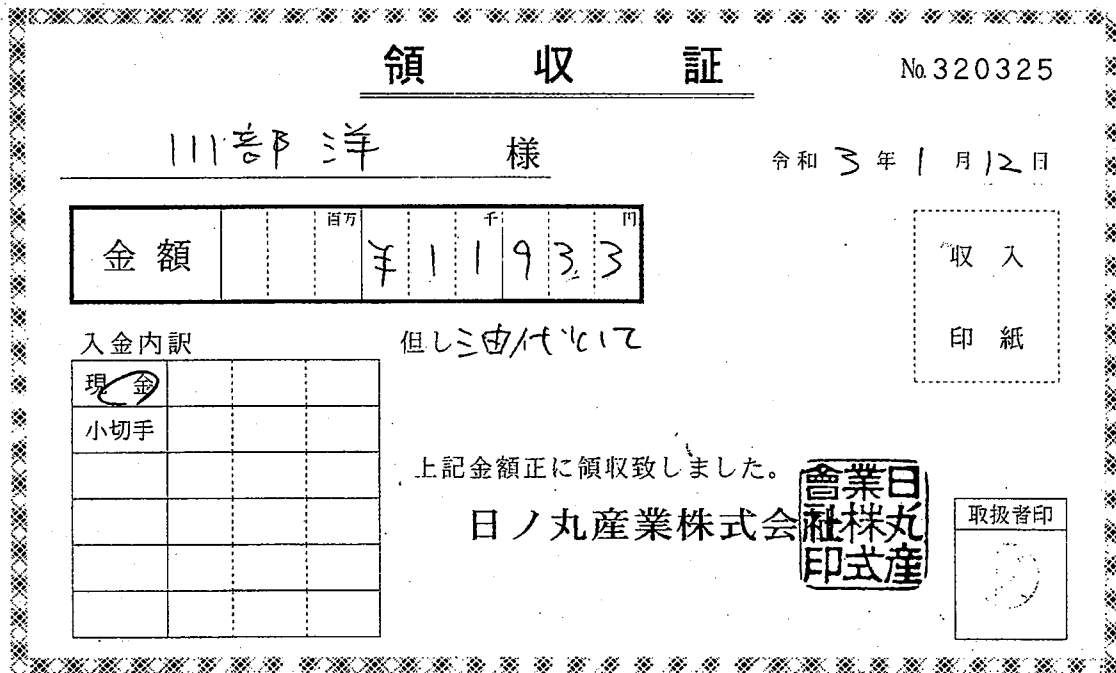 領収証
No.320325
川部 洋 様
令和 3 年 1 月 12 日
金額 百万 千 円 ¥11933
収入
印紙
入金内訳
但し 油代として
現金
小切手
上記金額正に領収致しました。
日ノ丸産業株式会社
日丸産業株式會社印
取扱者印